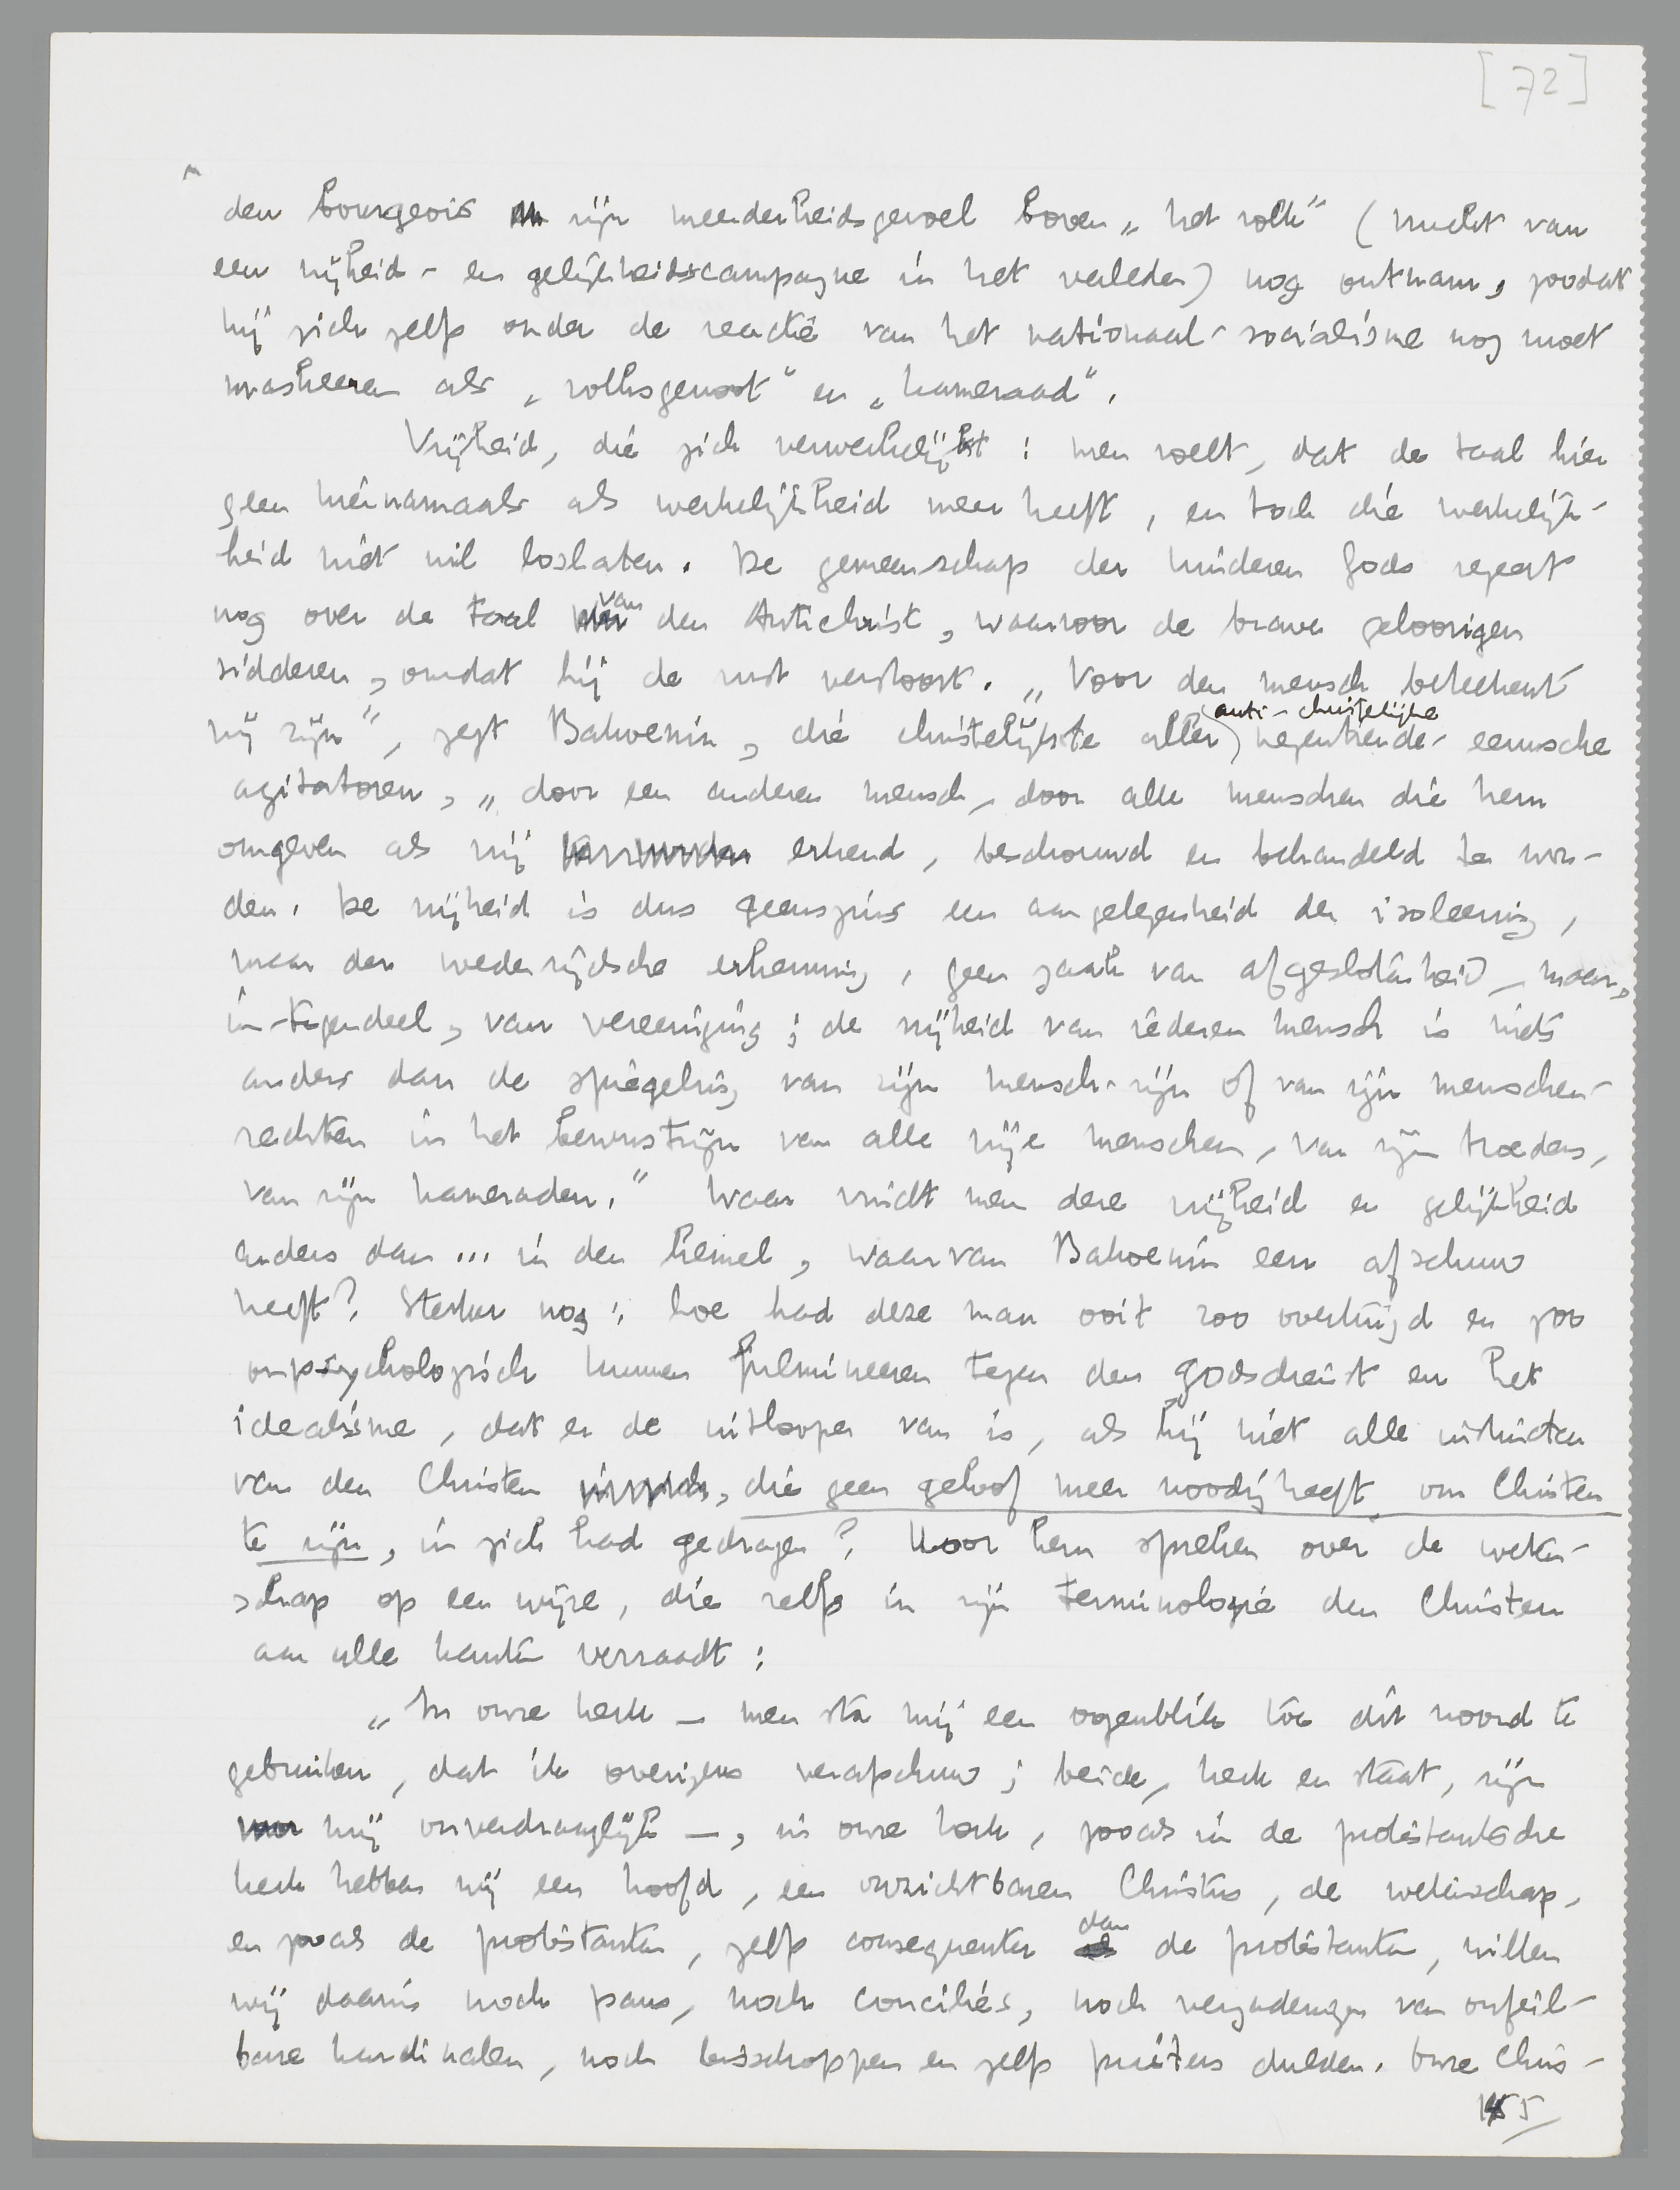 [72]
den bourgeois zijn meerderheidsgevoel boven „het volk" (vrucht van
een vrijheid- en gelijkheidscampagne in het verleden) nog ontnam, zoodat
hij zich zelfs onder de reactie van het nationaal-socialisme nog moet
maskeeren als „volksgenoot" en „kameraad".
Vrijheid, die zich verwerkelijkt: men voelt, dat de taal hier
geen hiernamaals als werkelijkheid meer heeft, en toch die werkelijk-
heid niet wil loslaten. De gemeenschap der kinderen Gods regeert
nog over de taal van den Antichrist, waarvoor de brave geloovigen
sidderen, omdat hij de rust verstoort. „Voor den mensch beteekent
vrij zijn", zegt Bakoenin, die christelijkste aller anti-christelijke negentiende-eeuwsche
agitatoren, „door een anderen mensch, door alle menschen die hem
omgeven als vrij erkend, beschouwd en behandeld te wor-
den. De vrijheid is dus geenszins een aangelegenheid der isoleering,
maar der wederzijdsche erkenning, geen zaak van afgeslotenheid, maar,
in-tegendeel, van vereeniging; de vrijheid van iederen mensch is niets
anders dan de spiegeling van zijn mensch-zijn of van zijn menschen-
rechten in het bewustzijn van alle vrije menschen, van zijn broeders,
van zijn kameraden." Waar vindt men deze vrijheid en gelijkheid
anders dan... in den hemel, waarvan Bakoenin een afschuw
heeft? Sterker nog: hoe had deze man ooit zoo overtuigd en zoo
onpsychologisch kunnen fulmineeren tegen den godsdienst en het
idealisme, dat er de uitlooper van is, als hij niet alle instincten
van den Christen, die geen geloof meer noodig heeft om Christen
te zijn, in zich had gedragen? Hoor hem spreken over de weten-
schap op een wijze, die zelfs in zijn terminologie den Christen
aan alle kanten verraadt:
„In onze kerk — men sta mij een oogenblik toe dit woord te
gebruiken, dat ik overigens verafschuw; beide, kerk en staat, zijn
mij onverdraaglijk —, in onze kerk, zooals in de protestantsche
kerk hebben wij een hoofd, een onzichtbaren Christus, de wetenschap,
en zooals de protestanten, zelfs consequenter dan de protestanten, willen
wij daarin noch paus, noch concilies, noch vergaderingen van onfeil-
bare kardinalen, noch bisschoppen en zelfs priesters dulden. Onze Chris-
155